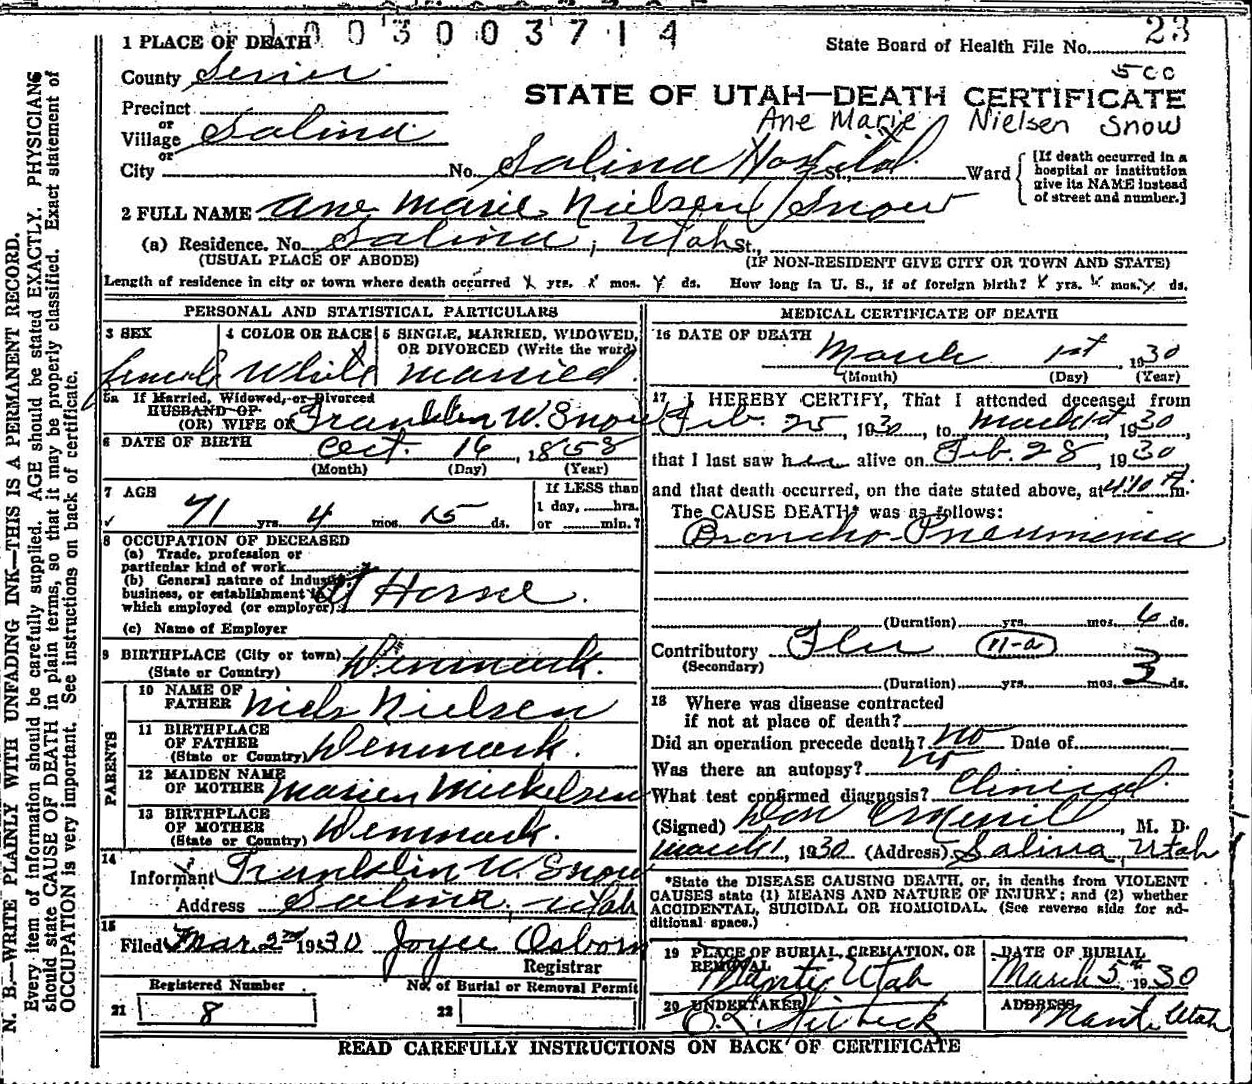 003003714
1 PLACE OF DEATH
State Board of Health File No. 23
County Sevier
5cc
STATE OF UTAH—DEATH CERTIFICATE
Precinct
or
Village Salina
Ane Marie Nielsen Snow
or
City No. Salina Hospital St., Ward
[If death occurred in a
hospital or institution
give its NAME instead
of street and number.]
2 FULL NAME Ane Marie Nielsen Snow
(a) Residence. No. Salina, Utah St.,
(USUAL PLACE OF ABODE) (IF NON-RESIDENT GIVE CITY OR TOWN AND STATE)
Length of residence in city or town where death occurred x yrs. x mos. x ds. How long in U. S., if of foreign birth? x yrs. x mos. x ds.
PERSONAL AND STATISTICAL PARTICULARS
3 SEX 4 COLOR OR RACE 5 SINGLE, MARRIED, WIDOWED,
OR DIVORCED (Write the word)
female White married.
5a If Married, Widowed, or Divorced
HUSBAND OF
(OR) WIFE OF Franklin W. Snow
6 DATE OF BIRTH Oct. 16, 1858
(Month) (Day) (Year)
7 AGE
71 yrs. 4 mos. 15 ds.
If LESS than
1 day, hrs.
or min.?
8 OCCUPATION OF DECEASED
(a) Trade, profession or
particular kind of work
(b) General nature of industry,
business, or establishment in
which employed (or employer) At Home.
(c) Name of Employer
9 BIRTHPLACE (City or town)
(State or Country) Denmark.
PARENTS
10 NAME OF
FATHER Niels Nielsen
11 BIRTHPLACE
OF FATHER
(State or Country) Denmark.
12 MAIDEN NAME
OF MOTHER Marien Mickelsen
13 BIRTHPLACE
OF MOTHER
(State or Country) Denmark.
14
Informant Franklin W. Snow
Address Salina, Utah
15
Filed Mar. 2nd 1930 Joyce Osborn
Registrar
Registered Number No. of Burial or Removal Permit
21 8 22
MEDICAL CERTIFICATE OF DEATH
16 DATE OF DEATH
March 1st, 1930
(Month) (Day) (Year)
17 I HEREBY CERTIFY, That I attended deceased from
Feb. 25, 1930, to March 1st, 1930,
that I last saw her alive on Feb. 28, 1930
and that death occurred, on the date stated above, at 4:10 A. m.
The CAUSE DEATH* was as follows:
Broncho-Pneumonia
(Duration) yrs. mos. 6 ds.
Contributory Flu 11-a
(Secondary)
(Duration) yrs. mos. 3 ds.
18 Where was disease contracted
if not at place of death?
Did an operation precede death? No Date of
Was there an autopsy? No
What test confirmed diagnosis? Clinical.
(Signed) Don C Merrill, M. D.
March 1, 1930 (Address) Salina, Utah
*State the DISEASE CAUSING DEATH, or, in deaths from VIOLENT
CAUSES state (1) MEANS AND NATURE OF INJURY; and (2) whether
ACCIDENTAL, SUICIDAL OR HOMICIDAL. (See reverse side for ad-
ditional space.)
19 PLACE OF BURIAL, CREMATION, OR
REMOVAL
Manti, Utah
DATE OF BURIAL
March 5th 1930
20 UNDERTAKER
ADDRESS
Manti, Utah
READ CAREFULLY INSTRUCTIONS ON BACK OF CERTIFICATE
N. B.—WRITE PLAINLY WITH UNFADING INK—THIS IS A PERMANENT RECORD.
Every item of information should be carefully supplied. AGE should be stated EXACTLY. PHYSICIANS
should state CAUSE OF DEATH in plain terms, so that it may be properly classified. Exact statement of
OCCUPATION is very important. See instructions on back of certificate.